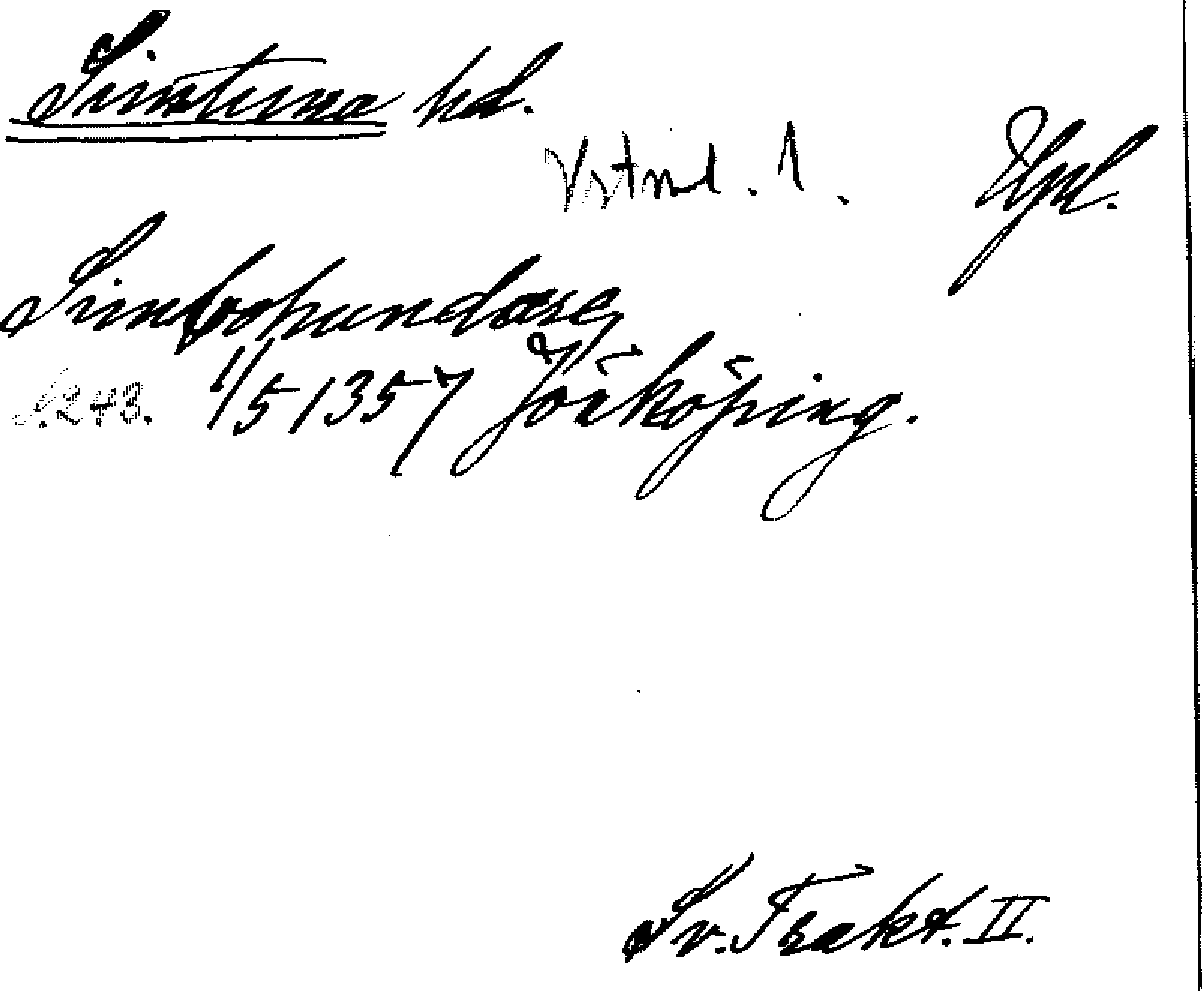 Simtuna hd.
Vstml. 1. Upl.
Simbohundare,
s. 243. 1/5 1357 Jönköping.
Sv. Trakt. II.